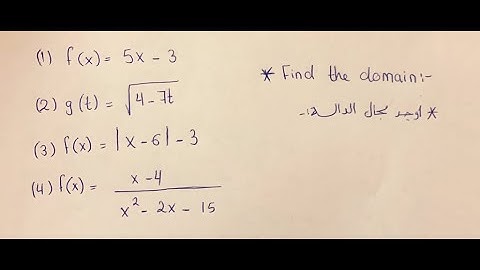 (1) f(x) = 5x - 3
(2) g(t) = √(4 - 7t)
(3) f(x) = |x - 6| - 3
(4) f(x) = (x - 4) / (x² - 2x - 15)
* Find the domain:-
* اوجد مجال الدالة:-